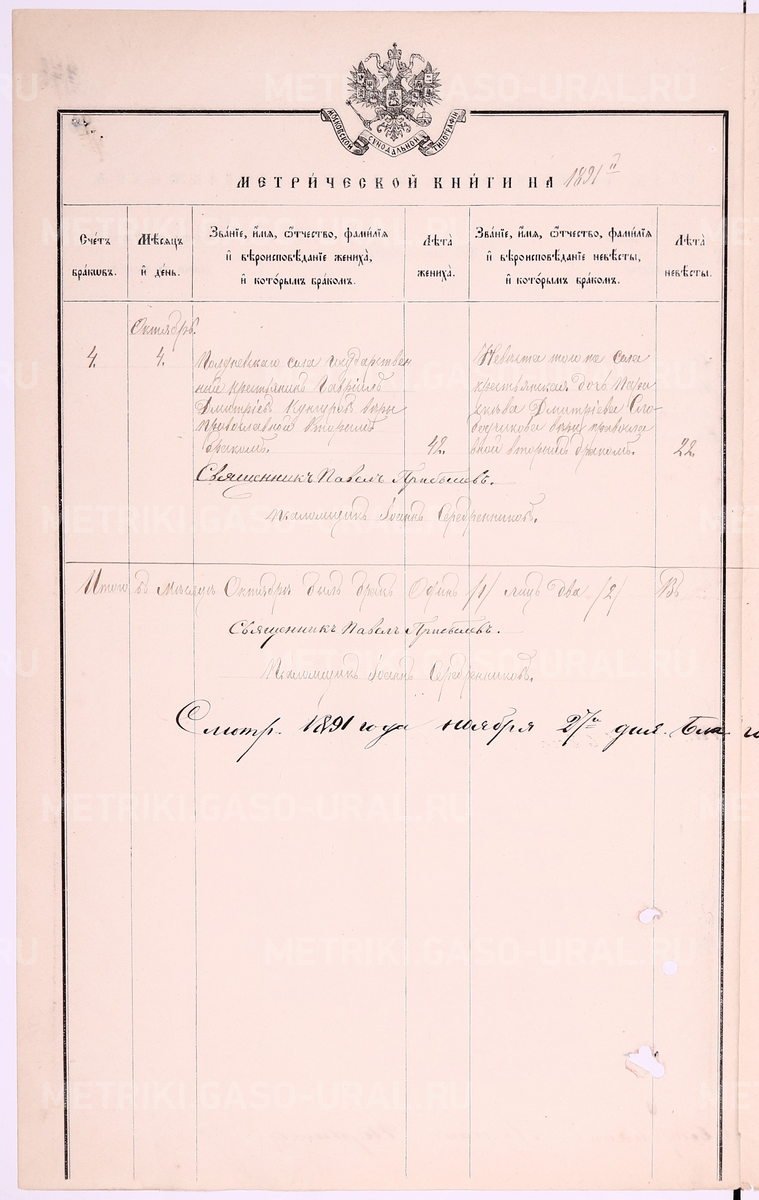 МОСКОВСКОЙ СѴНОДАЛЬНОЙ ТИПОГРАФІИ
МЕТРИ́ЧЕСКОЙ КНИ́ГИ НА 1891й
Сче́тъ бра́кѡвъ.
Мѣ́сяцъ и҆ де́нь.
Зва́нїе, и҆́мя, ѻ҆́тчество, фами́лїя и҆ вѣроисповѣ́данїе жениха̀, и҆ кото́рымъ бра́комъ.
Лѣ́та жениха̀.
Зва́нїе, и҆́мя, ѻ҆́тчество, фами́лїя и҆ вѣроисповѣ́данїе невѣ́сты, и҆ кото́рымъ бра́комъ.
Лѣ́та невѣ́сты.
Октябрь.
4.
4.
Полдневскаго села государствен
ный крестьянинъ Гавріилъ
Дмитріевъ Кунгуровъ вѣры
православной вторымъ
бракомъ.
42.
Невѣста того же села
крестьянская дочь Пара
скева Дмитріева Сло
бодчикова вѣры правосла
вной вторымъ бракомъ.
22.
Священникъ Павелъ
Псаломщикъ Іоаннъ Серебренниковъ.
Итого въ мѣсяцѣ Октябрѣ былъ бракъ Одинъ /1/ лицъ два /2/ Въ
Священникъ Павелъ
Псаломщикъ Іоаннъ Серебренниковъ.
Смотр. 1891 года ноября 27го дня. Бла
METRIKI.GASO-URAL.RU